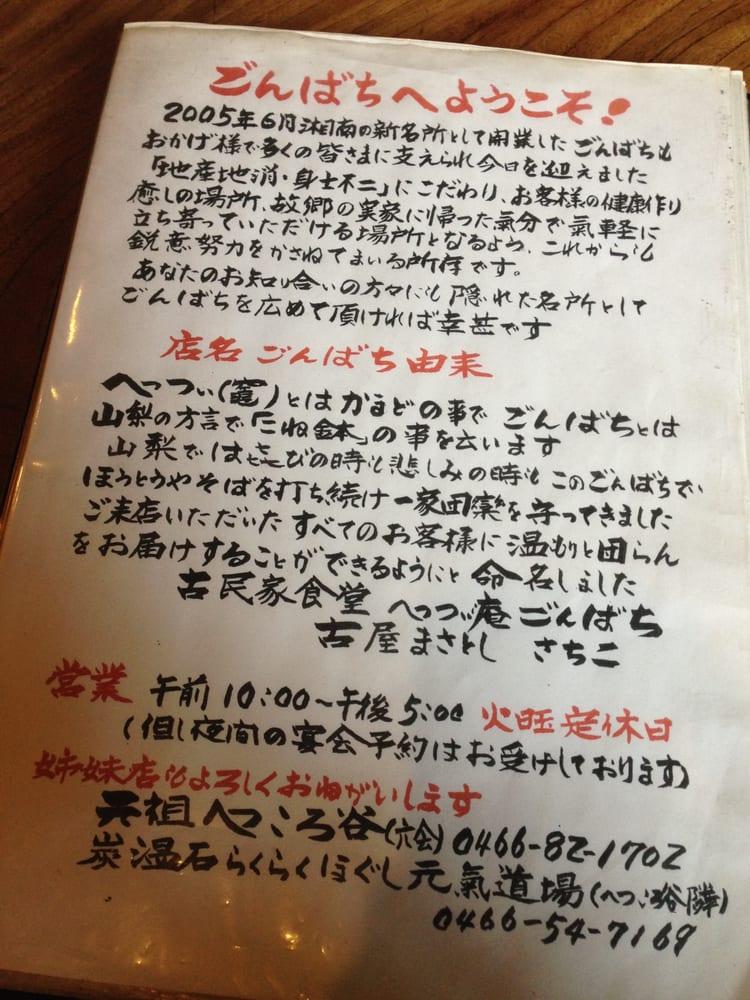 ごんばちへようこそ!
2005年6月湘南の新名所として開業したごんばちも
おかげ様で多くの皆さまに支えられ今日を迎えました
「地産地消・身土不二」にこだわり、お客様の健康作り
癒しの場所、故郷の実家に帰った気分で氣軽に
立ち寄っていただける場所となるよう、これからも
鋭意努力をかさねてまいる所存です。
あなたのお知り合いの方々にも隠れた名所として
ごんばちを広めて頂ければ幸甚です
店名 ごんばち由来
へっつい(竈)とはかまどの事で ごんばちとは
山梨の方言で「こね鉢」の事を云います
山梨では㐂びの時も悲しみの時も このごんばちで
ほうとうやそばを打ち続け一家団欒を守ってきました
ご来店いただいたすべてのお客様に温もりと団らん
をお届けすることができるようにと 命名しました
古民家食堂 へっつい庵ごんばち
古屋まさとし さちこ
営業 午前10:00〜午後5:00 火旺定休日
(但し夜間の宴会予約はお受けしております)
姉妹店もよろしくおねがいします
元祖へっころ谷(六会)0466-82-1702
炭温石らくらくほぐし元氣道場(へっころ谷隣)
0466-54-7169